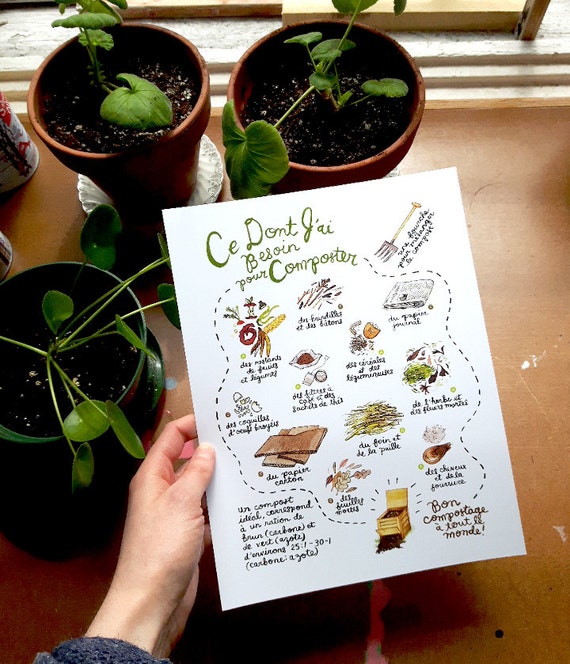 Ce Dont J'ai
Besoin
pour Composter
une fourche
pour mélanger
le compost
des brindilles
et des bâtons
du papier
journal
des restants
de fruits
et légumes
des filtres à
café et des
sachets de thés
des céréales
et des
légumineuses
de l'herbe et
des fleurs mortes
des coquilles
d'oeuf broyées
du papier
carton
du foin et
de la paille
des cheveux
et de la
fourrure
des
feuilles
mortes
un compost
idéal, correspond
à un ration de
brun (carbone) et
de vert (azote)
d'environs 25:1-30:1
(carbone:azote)
Bon
compostage
à tout le
monde!